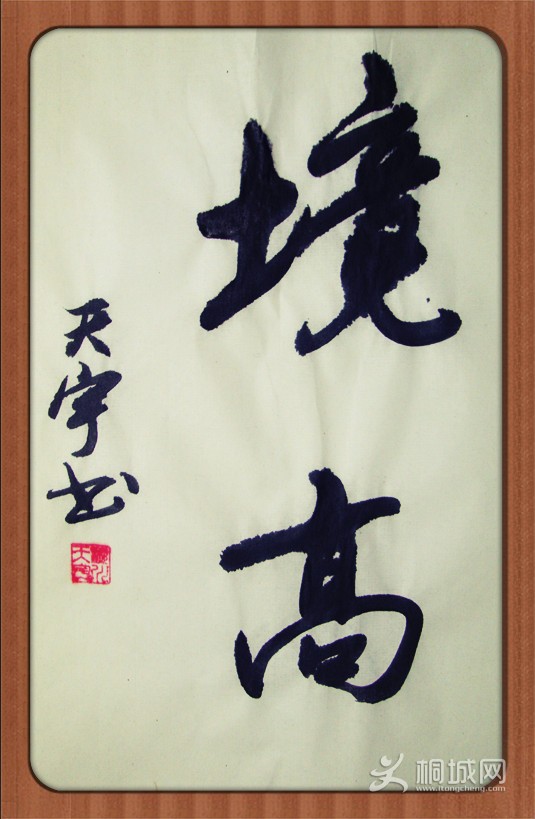 境高
天宇书
桐城网
www.itongcheng.com